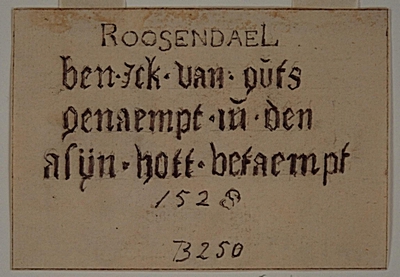 ROOSENDAEL
ben·ick·van·gūts
genaempt·iū·den
asijn·hott·betaempt
1528
B250